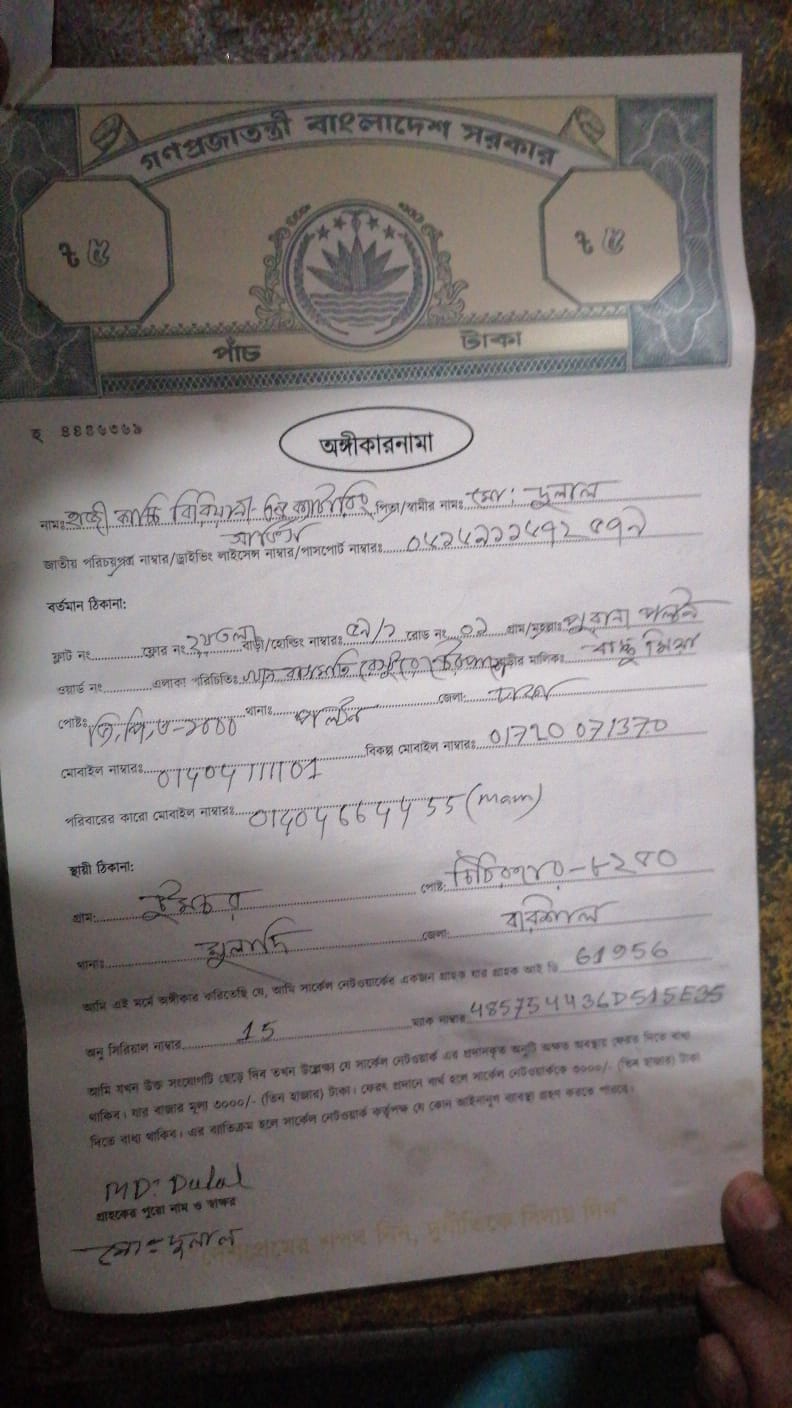 গণপ্রজাতন্ত্রী বাংলাদেশ সরকার
৳ ৫ ৳ ৫
পাঁচ টাকা
অঙ্গীকারনামা
নামঃ হাজী কাচ্চি বিরিয়ানী পিতা/স্বামীর নামঃ মো: দুলাল
জাতীয় পরিচয়পত্র নাম্বার/ড্রাইভিং লাইসেন্স নাম্বার/পাসপোর্ট নাম্বারঃ
বর্তমান ঠিকানা:
ফ্লাট নং ফ্লোর নং ২য় তলা বাড়ী/হোল্ডিং নাম্বারঃ ৫৯/২ রোড নং ০১ গ্রাম/মহল্লাঃ পুরানা পল্টন
ওয়ার্ড নং এলাকা পরিচিতিঃ বাড়ীর মালিকঃ বাচ্চু মিয়া
পোষ্টঃ জি,পি,ও-১০০০ থানাঃ পল্টন জেলা: ঢাকা
মোবাইল নাম্বারঃ বিকল্প মোবাইল নাম্বারঃ 01720 071370
পরিবারের কারো মোবাইল নাম্বারঃ (mam)
স্থায়ী ঠিকানা:
গ্রাম: টুমচর পোষ্ট:
থানাঃ মুলাদি জেলা: বরিশাল
আমি এই মর্মে অঙ্গীকার করিতেছি যে, আমি সার্কেল নেটওয়ার্কের একজন গ্রাহক যার গ্রাহক আই ডি 61956
অনু সিরিয়াল নাম্বার 15 ম্যাক নাম্বার 485754436D515E35
আমি যখন উক্ত সংযোগটি ছেড়ে দিব তখন উল্লেক্ষ্য যে সার্কেল নেটওয়ার্ক এর প্রদানকৃত অনুটি অক্ষত অবস্থায় ফেরত দিতে বাধ্য
থাকিব। যার বাজার মূল্য ৩০০০/- (তিন হাজার) টাকা। ফেরৎ প্রদানে ব্যর্থ হলে সার্কেল নেটওয়ার্ককে ৩০০০/- (তিন হাজার) টাকা
দিতে বাধ্য থাকিব। এর ব্যতিক্রম হলে সার্কেল নেটওয়ার্ক কর্তৃপক্ষ যে কোন আইনানুগ ব্যবস্থা গ্রহণ করতে পারবে।
MD: Dulal
গ্রাহকের পুরো নাম ও স্বাক্ষর
মো: দুলাল
দেশপ্রেমের শপথ নিন, দুর্নীতিকে বিদায় দিন"